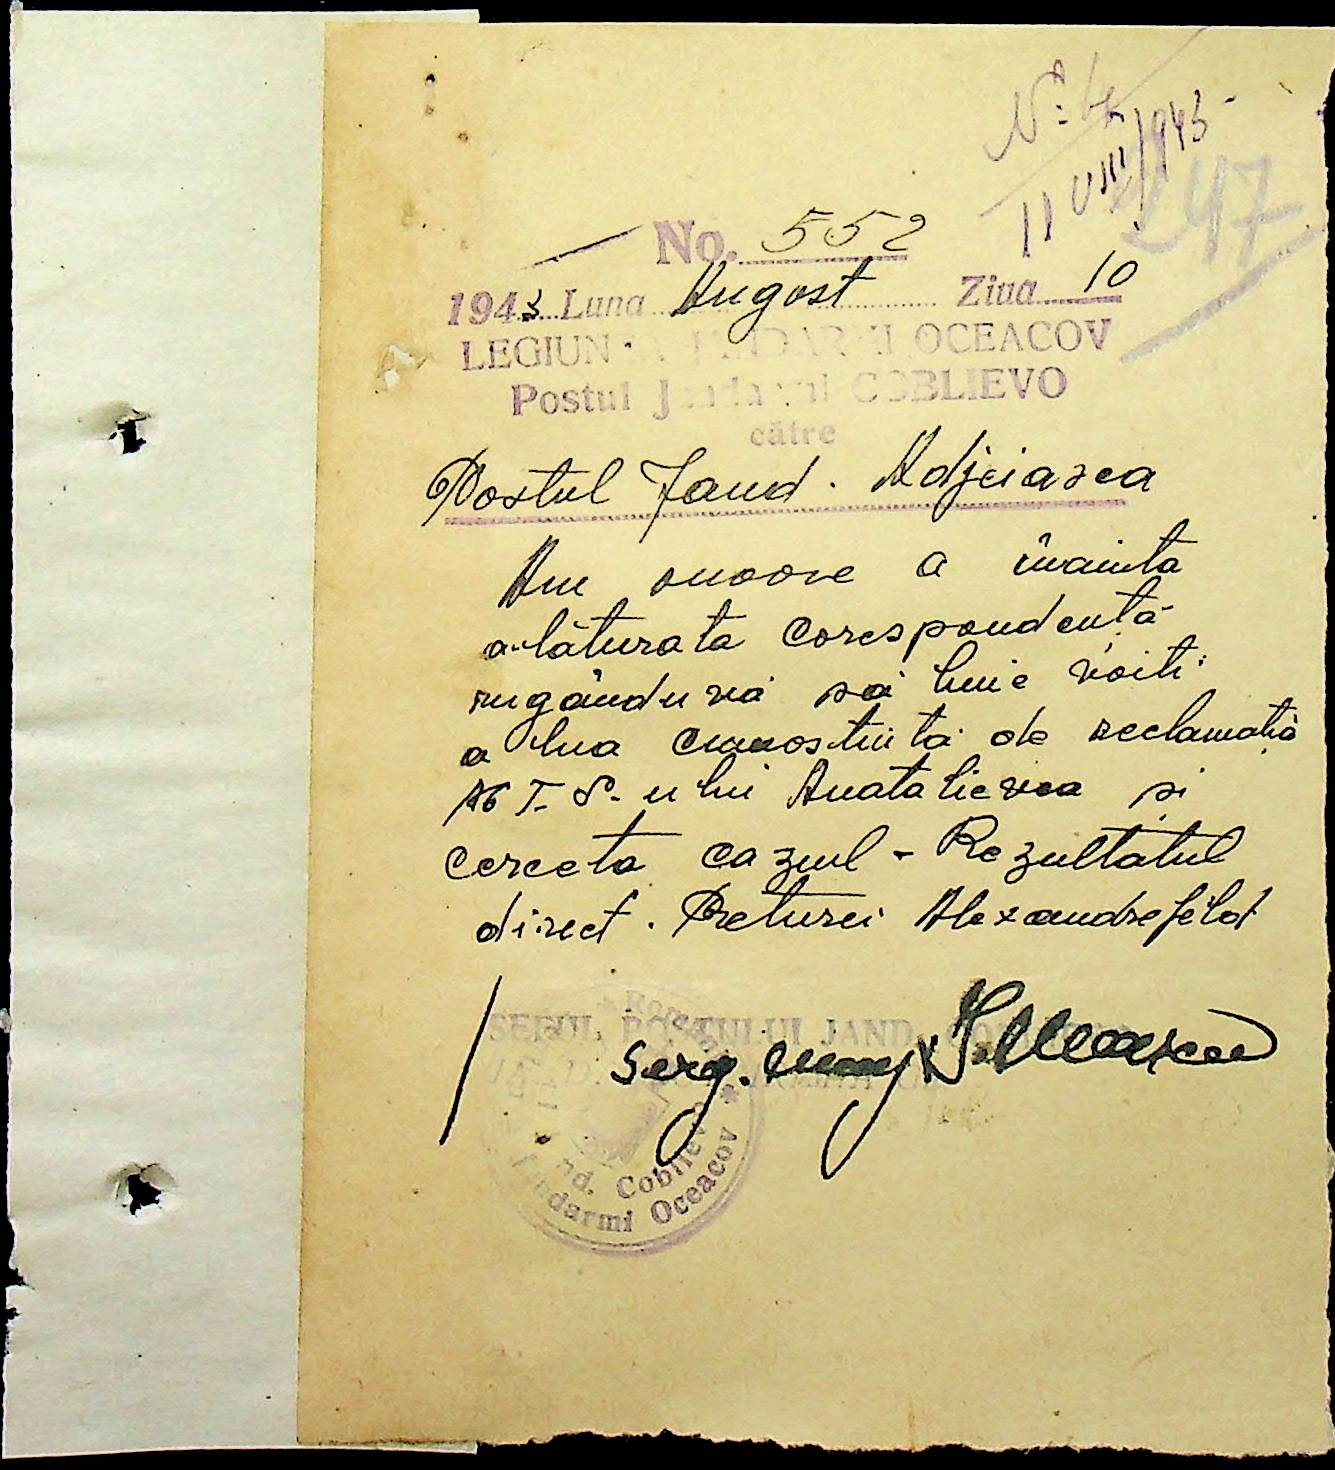 No 4
11 VIII/1943
247
No. 552
1943 Luna August Ziua 10
LEGIUNEA JANDARMI OCEACOV
Postul Jandarmi COBLIEVO
către
Postul Jand. Adjiasca
Am onoare a înainta
alăturata corespondență
rugându vă să bine voiți
a lua cunoștință de reclamația
M T. S. ului Anatalievca și
cerceta cazul - Rezultatul
direct. Preturei Alexandrefeld
SEFUL POSTULUI JAND.
Serg. Maj
nd. Coblievo
Jandarmi Oceacov